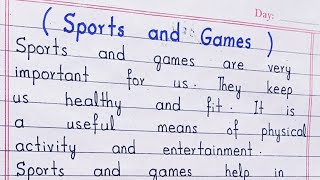 Day:
( Sports and Games )
Sports and games are very
important for us. They keep
us healthy and fit. It is
a useful means of physical
activity and entertainment.
Sports and games help in